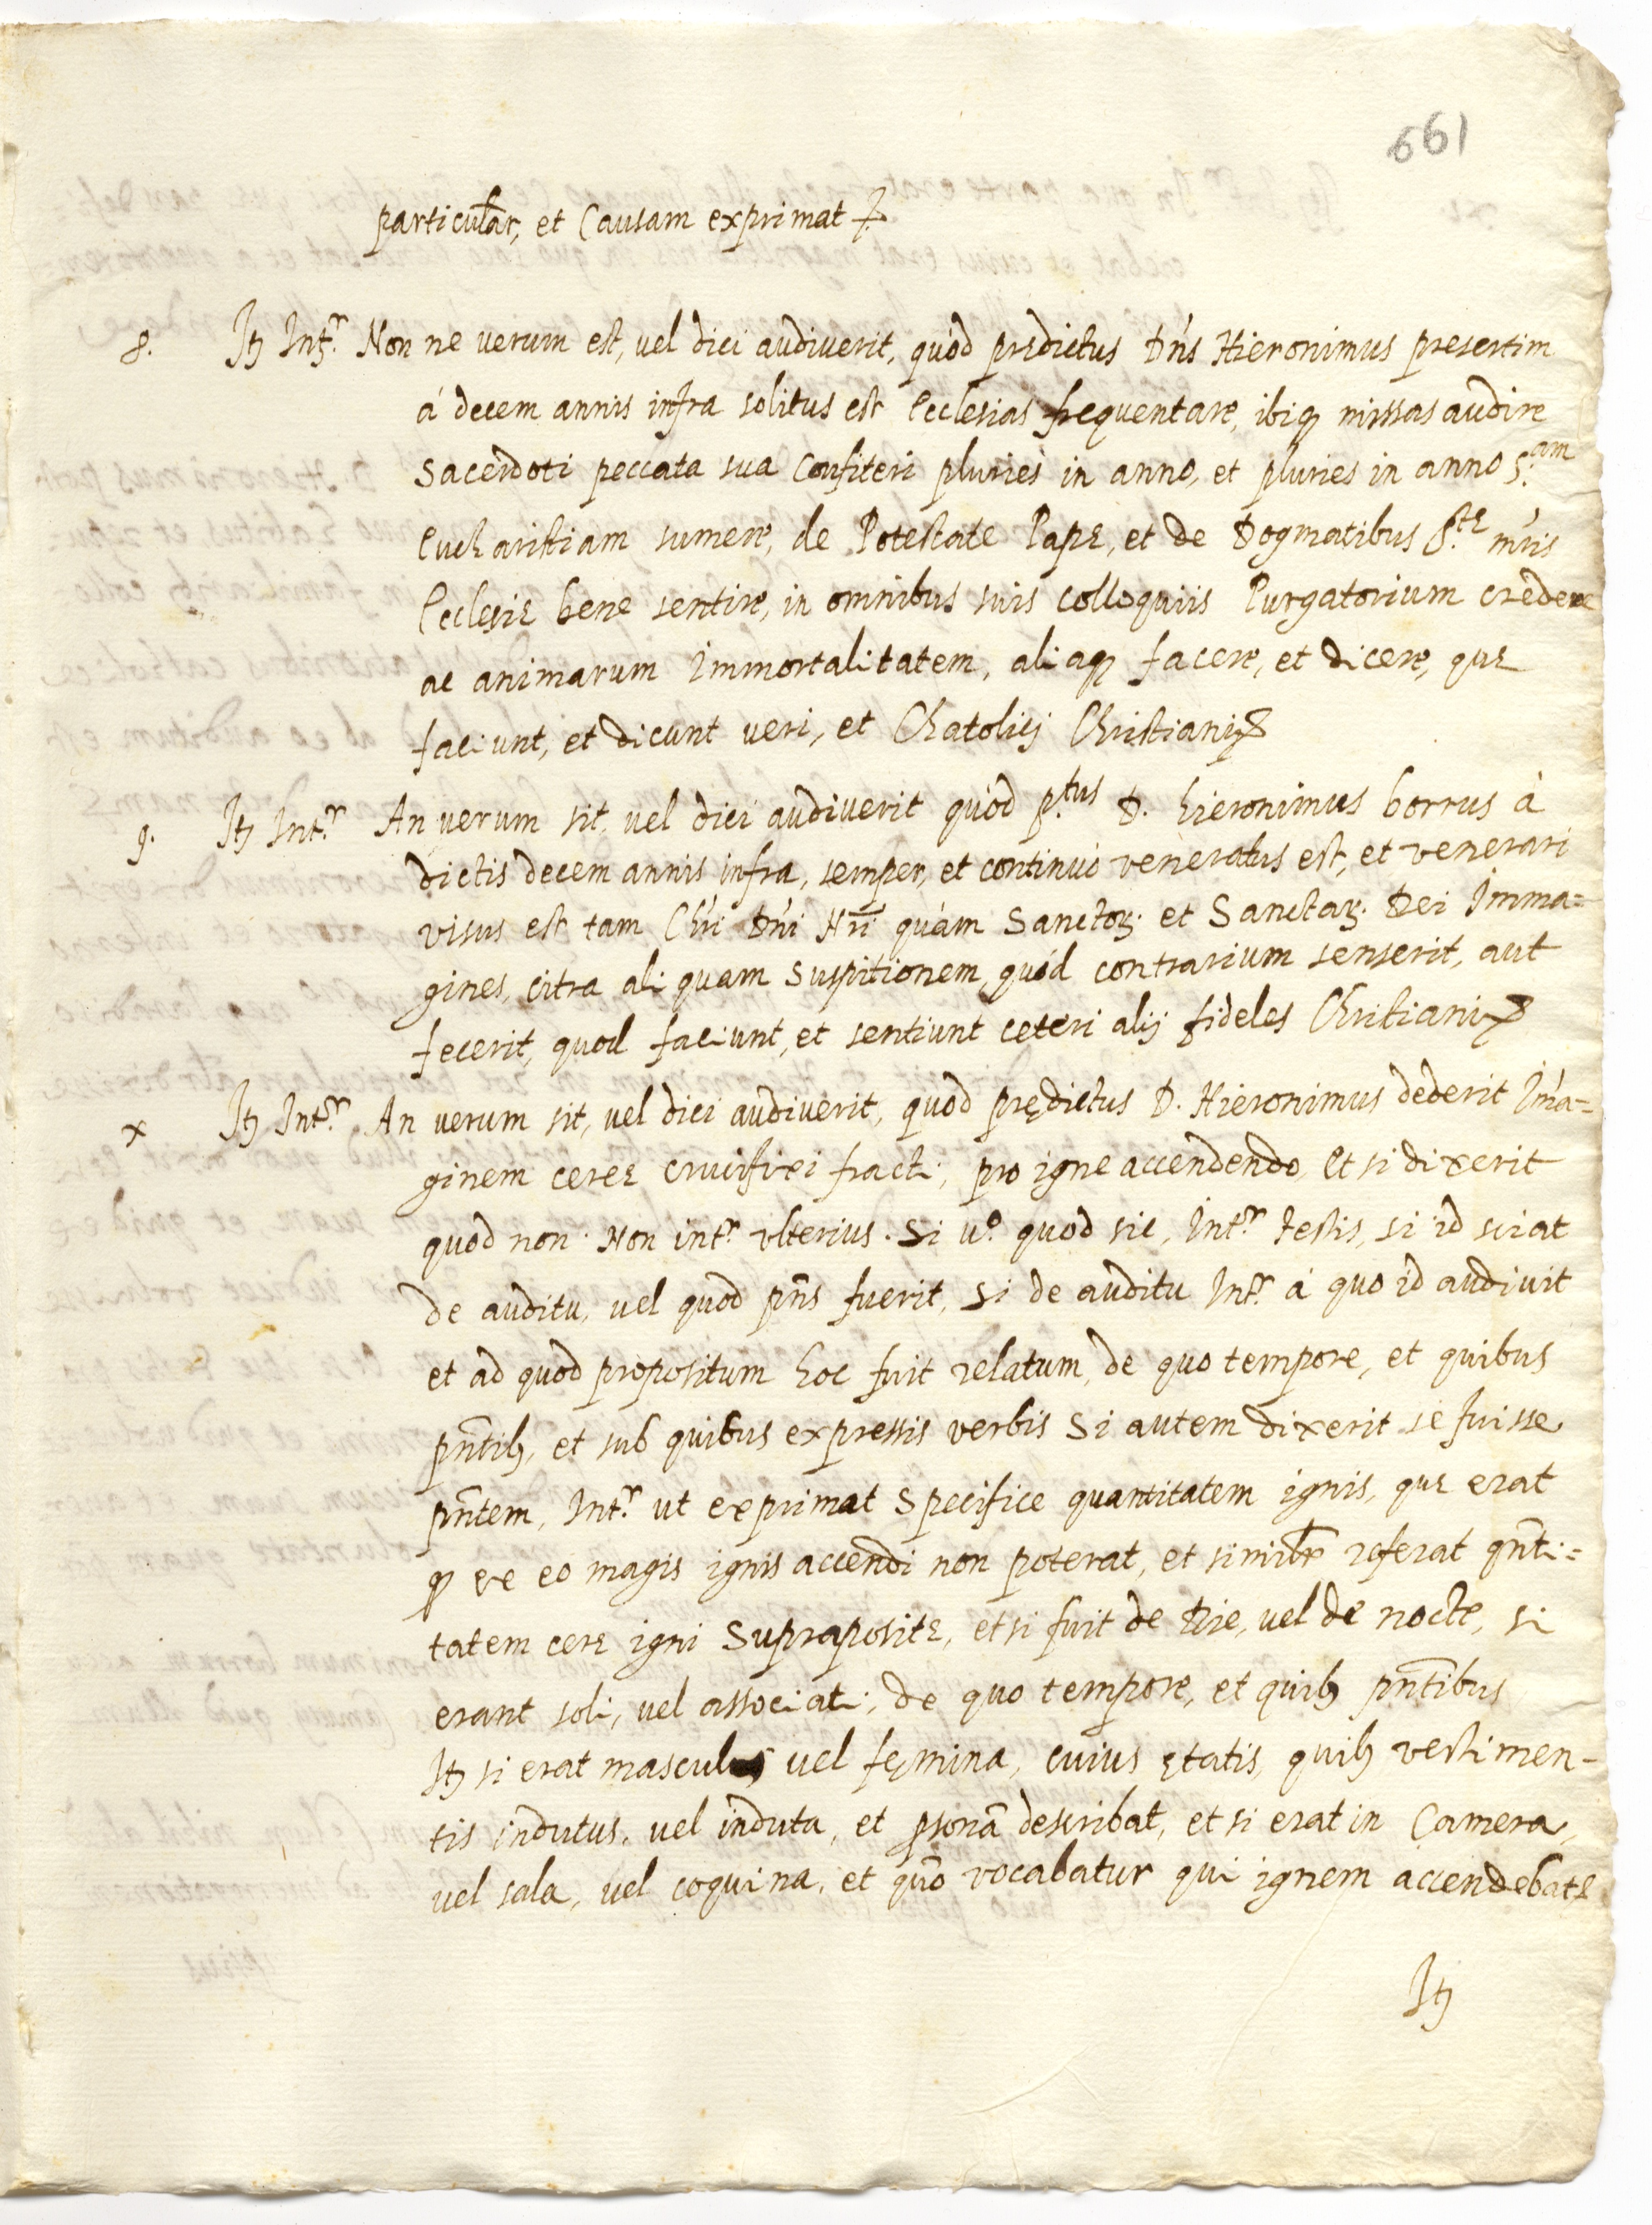 661
particular, et Causam exprimat
8. It Int.r Non ne verum est, vel dici audiverit, quòd predictus Dn's Hieronimus presertim
à decem annis infra solitus est Ecclesias frequentare, ibiq missas audire
Sacerdoti peccata sua Confiteri pluries in anno, et pluries in anno S.am
Eucharistiam sumere, de Potestate Pape, et de Dogmatibus S.te mris
Ecclesie bene sentire, in omnibus suis colloquiis Purgatorium credere
ac animarum Immortalitatem, aliaq facere, et dicere, que
faciunt, et dicunt veri, et Chatolicj Christianj
9. It Int.r An verum sit, vel dici audiverit quòd p.tus D. hieronimus borrus à
dictis decem annis infra, semper, et continuò veneratus est, et venerari
visus est tam Chri Dni Nri quàm Sanctoꝝ. et Sanctaꝝ. Dei Imma=
gines, citra aliquam suspitionem, quòd contrarium senserit, aut
fecerit, quod faciunt, et sentiunt ceteri alij fideles Christiani
x It Int.r An verum sit, vel dici audiverit, quod prędictus D. Hieronimus dederit Im'a=
ginem ceree crucifixi fracti, pro igne accendendo, Et si dixerit
quod non. Non int.r ulterius. Si v.o quod sic, Int.r testis, si id sciat
de auditu, vel quod pñs fuerit, Si de auditu Int.r à quo id audivit
et ad quod propositum hoc fuit relatum, de quo tempore, et quibus
pñtib, et sub quibus expressis verbis Si autem dixerit se fuisse
pñtem, Int.r ut exprimat Specifice quantitatem ignis, que erat
ꝙ ex eo magis ignis accendi non poterat, et similr referat qñti=
tatem cere igni Supraposite, et si fuit de Die, vel de nocte, si
erant soli, vel associati, de quo tempore, et quib pñtibus
It si erat masculus vel fęmina, cuius ętatis, quib vestimen-
tis indutus, vel induta, et psonã describat, et si erat in Camera,
vel sala, vel coquina, et quõ vocabatur qui ignem accendebat
It